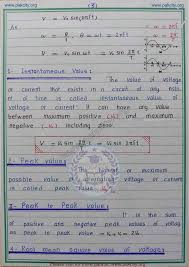 www.pakcity.org
(3)
www.pakcity.org
V = V₀ sin(2πft)
As
ω = θ/t , θ = ωt = 2πft
V = V₀ sin ωt = V₀ sin 2π/T t
1- Instantaneous Value:
The value of voltage
or current that exists in a circuit at any
instant of time is called instantaneous value of
voltage or current. It can have any value
between maximum positive (+V₀) and maximum
negative (-V₀) including zero.
V = V₀ sin 2π/T t = V₀ sin 2πft
2- Peak value:
The highest or maximum
possible value of alternating voltage or current
is called peak value
3- Peak to Peak value:
It is the sum
of positive and negative peak values of voltage
as Peak to peak value
4- Root mean square value of voltage: